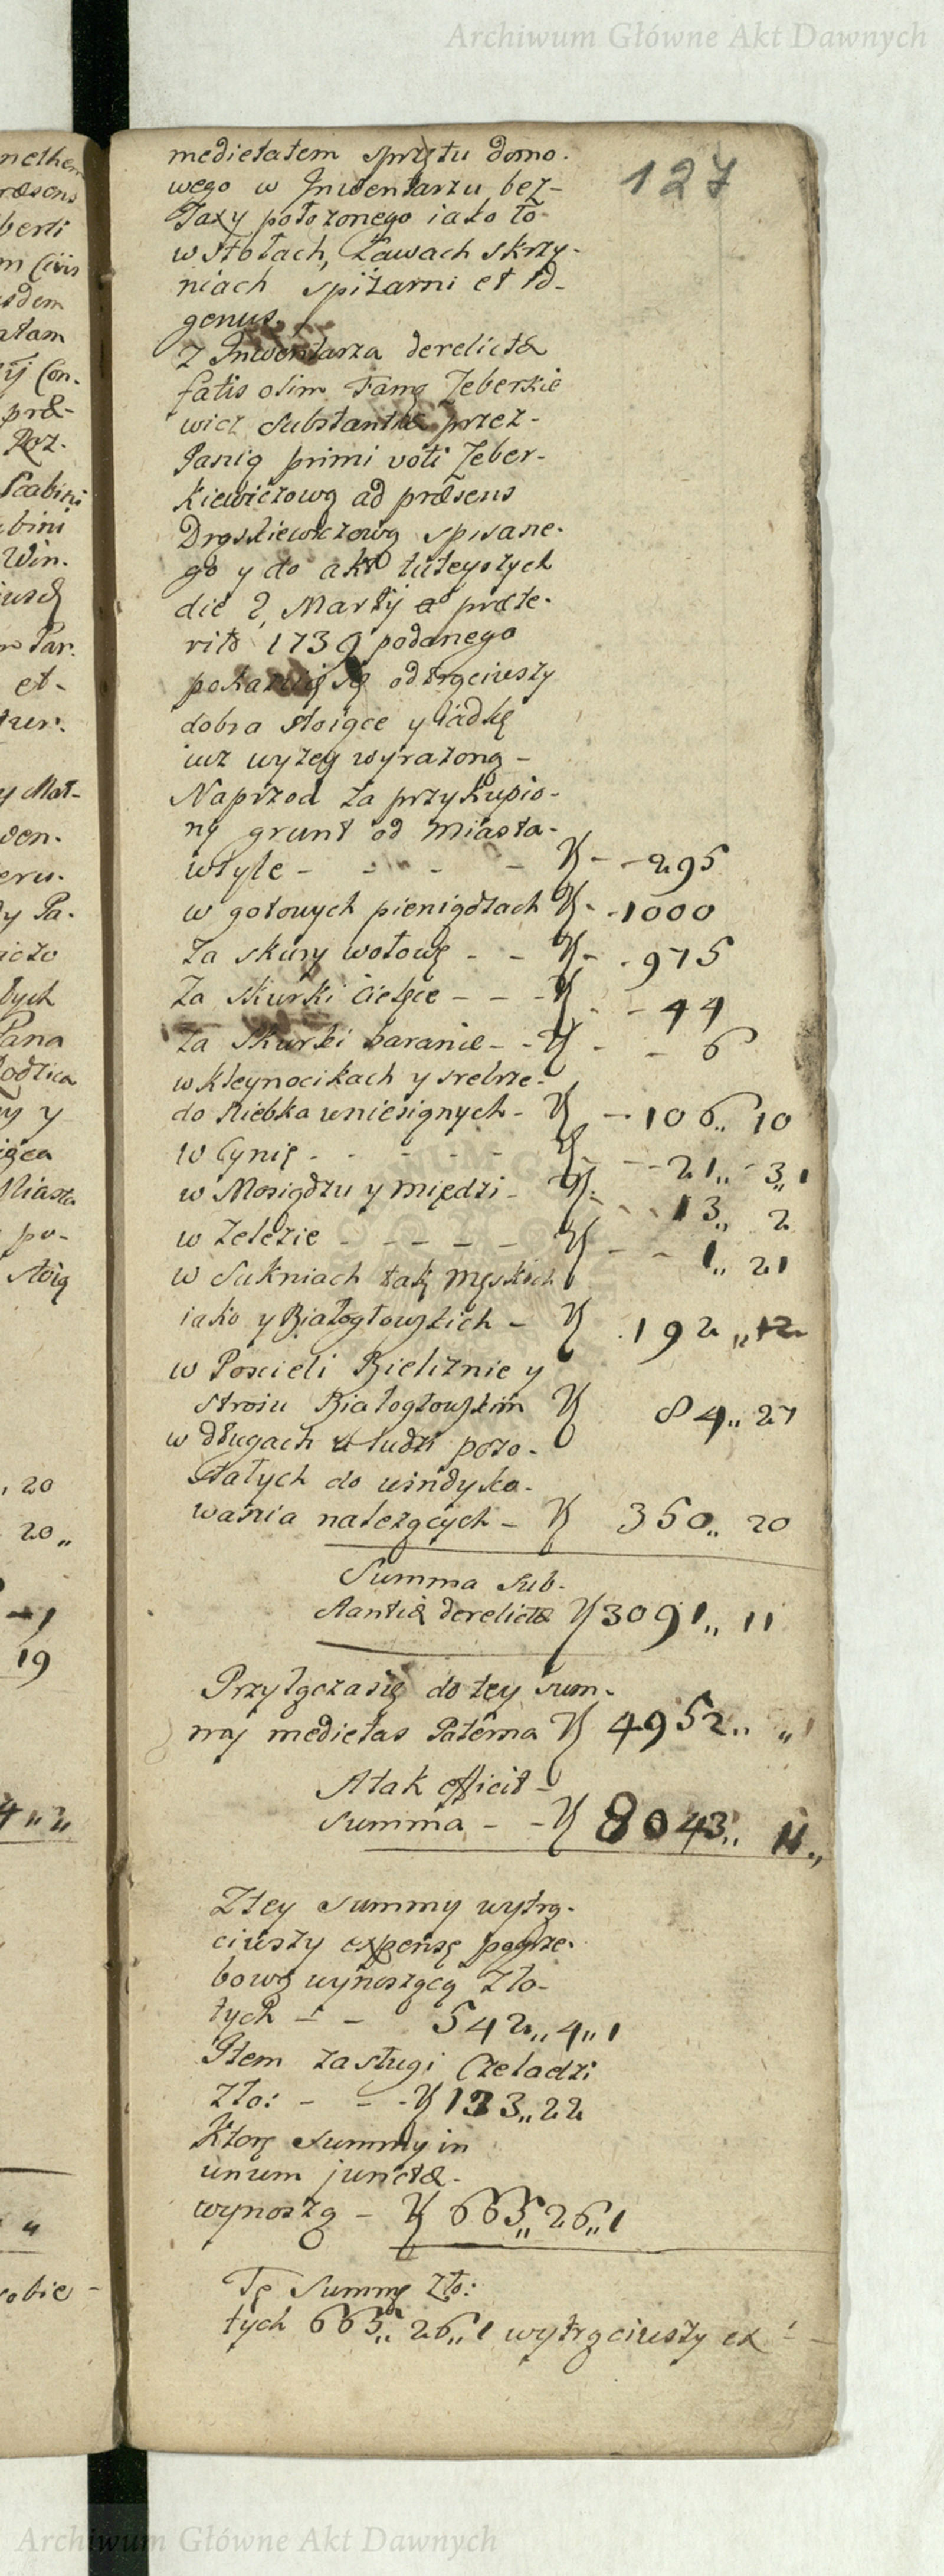 Archiwum Główne Akt Dawnych
127
medietatem sprzętu domo-
wego w Inwentarzu bez-
Taxy położonego iako to
w stołach, Ławach skrzy-
niach spiżarni et id-
genus.
Z Inwentarza derelictæ
fatis olim Pana Zeberkie
wicz substantiæ przez-
Panią primi voti Zeber-
kiewiczową ad præsens
Drąskiewiczową spisane-
go y do akt tuteyszych
die 2, Martÿ aº præte-
rito 1739 podanego
pokazuię się odtrąciwszy
dobra stoiące y ładkę
iuż wyżey wyrażoną -
Naprzod za przykupio-
ny grunt od miasta-
wtyle - - - - - 295
w gotowych pieniądzach - 1000
Za skury wołowe - - - 975
Za skurki cielęce - - - 44
Za skurki baranie - - - 6
w kleynocikach y srebrze-
do skiebka wniesionych - 106,, 10
w Cynie - - - - - 21,, 3,, 1
w Mosiądzu y miedzi - 13,, 2
w Żelezie - - - - - 1,, 21
w Sukniach tak męskich
iako y Białogłowskich - 192,, 12
w Poscieli Bieliznie y
stroiu Białogłowskim 84,, 27
w długach u ludzi pozo-
stałych do windyko-
wania należących - 350,, 20
Summa sub-
stantiæ derelictæ 3091,, 11
Przyłącza się do tey sum-
my medietas Paterna 4952,, ,,
A tak efficit -
summa - - 8043,, 11,,
Z tey summy wytrą-
ciwszy expensę pogrze-
bową wynoszącą Zło-
tych - - 542,, 4,, 1
Item zasługi Czeladzi
Zło: - - - 123,, 22
Które summy in
unum junctæ-
wynoszą - 665,, 26,, 1
Tę summę Zło:
tych 665,, 26,, 1 wytrąciwszy ex
Archiwum Główne Akt Dawnych